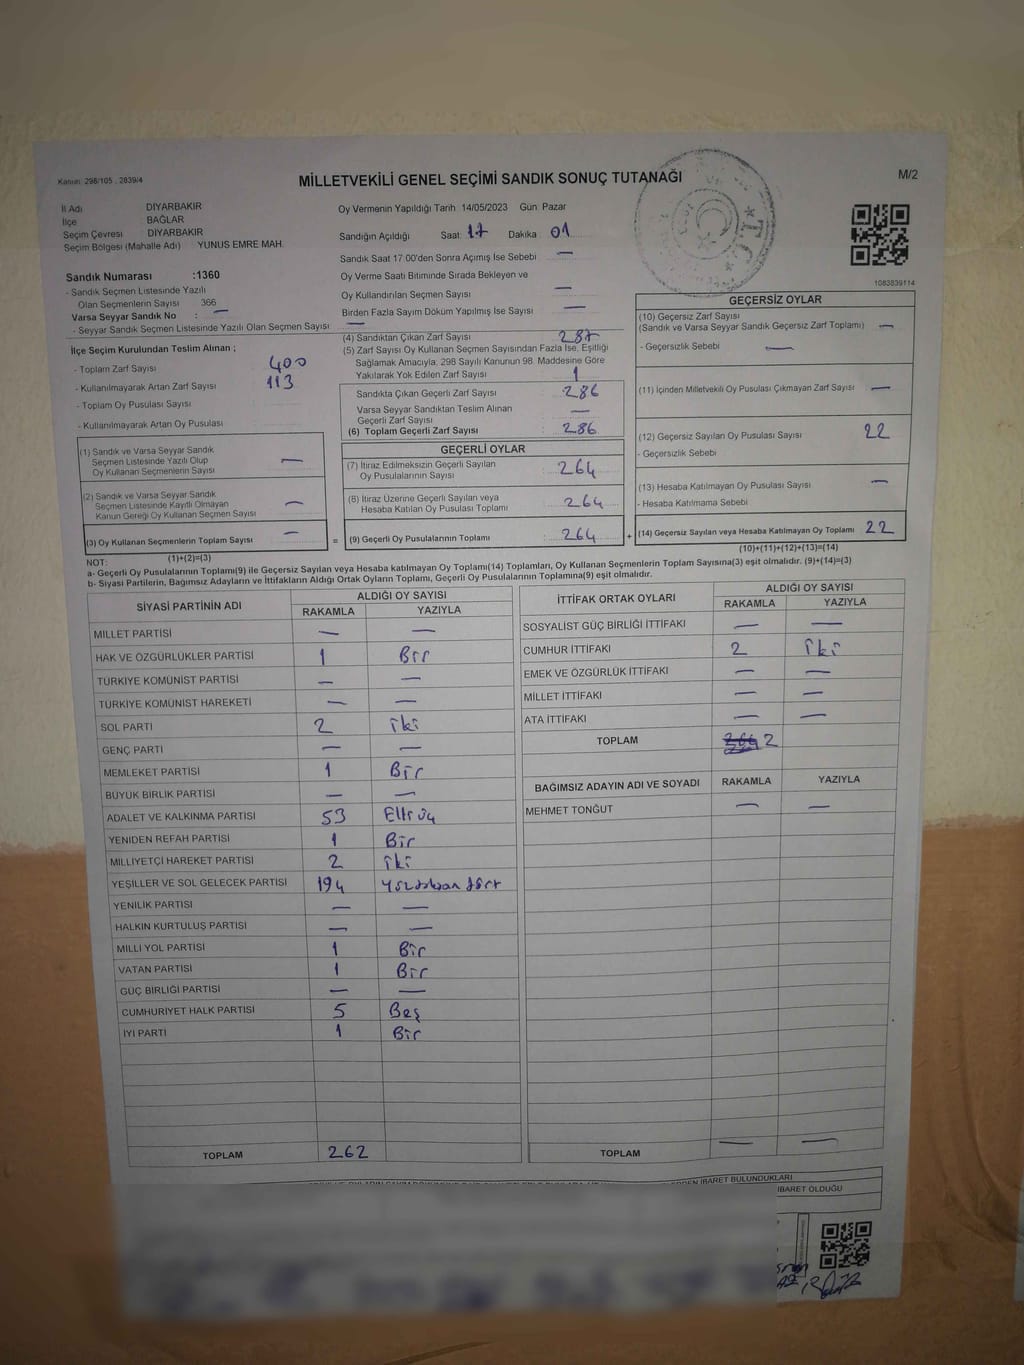 Kanun: 298/105 , 2839/4
MİLLETVEKİLİ GENEL SEÇİMİ SANDIK SONUÇ TUTANAĞI
M/2
İl Adı DİYARBAKIR
İlçe BAĞLAR
Seçim Çevresi : DİYARBAKIR
Seçim Bölgesi (Mahalle Adı) YUNUS EMRE MAH.
Oy Vermenin Yapıldığı Tarih 14/05/2023 Gün Pazar
Sandığın Açıldığı Saat: 17 Dakika 01
Sandık Saat 17:00'den Sonra Açımış İse Sebebi —
Oy Verme Saati Bitiminde Sırada Bekleyen ve
Oy Kullandırılan Seçmen Sayısı —
Birden Fazla Sayım Döküm Yapılmış İse Sayısı —
1083839114
Sandık Numarası :1360
- Sandık Seçmen Listesinde Yazılı
Olan Seçmenlerin Sayısı 366
Varsa Seyyar Sandık No : —
- Seyyar Sandık Seçmen Listesinde Yazılı Olan Seçmen Sayısı —
İlçe Seçim Kurulundan Teslim Alınan ;
- Toplam Zarf Sayısı 400
- Kullanılmayarak Artan Zarf Sayısı 113
- Toplam Oy Pusulası Sayısı
- Kullanılmayarak Artan Oy Pusulası
(1) Sandık ve Varsa Seyyar Sandık
Seçmen Listesinde Yazılı Olup
Oy Kullanan Seçmenlerin Sayısı —
(2) Sandık ve Varsa Seyyar Sandık
Seçmen Listesinde Kayıtlı Olmayan
Kanun Gereği Oy Kullanan Seçmen Sayısı —
(3) Oy Kullanan Seçmenlerin Toplam Sayısı —
(1)+(2)=(3)
(4) Sandıktan Çıkan Zarf Sayısı 287
(5) Zarf Sayısı Oy Kullanan Seçmen Sayısından Fazla İse, Eşitliği
Sağlamak Amacıyla, 298 Sayılı Kanunun 98. Maddesine Göre
Yakılarak Yok Edilen Zarf Sayısı 1
Sandıkta Çıkan Geçerli Zarf Sayısı 286
Varsa Seyyar Sandıktan Teslim Alınan
Geçerli Zarf Sayısı —
(6) Toplam Geçerli Zarf Sayısı 286
GEÇERLİ OYLAR
(7) İtiraz Edilmeksizin Geçerli Sayılan
Oy Pusulalarının Sayısı 264
(8) İtiraz Üzerine Geçerli Sayılan veya
Hesaba Katılan Oy Pusulası Toplamı 264
= (9) Geçerli Oy Pusulalarının Toplamı 264
GEÇERSİZ OYLAR
(10) Geçersiz Zarf Sayısı
(Sandık ve Varsa Seyyar Sandık Geçersiz Zarf Toplamı) —
- Geçersizlik Sebebi —
(11) İçinden Milletvekili Oy Pusulası Çıkmayan Zarf Sayısı —
(12) Geçersiz Sayılan Oy Pusulası Sayısı 22
- Geçersizlik Sebebi
(13) Hesaba Katılmayan Oy Pusulası Sayısı —
- Hesaba Katılmama Sebebi
+ (14) Geçersiz Sayılan veya Hesaba Katılmayan Oy Toplamı 22
(10)+(11)+(12)+(13)=(14)
NOT:
a- Geçerli Oy Pusulalarının Toplamı(9) ile Geçersiz Sayılan veya Hesaba katılmayan Oy Toplamı(14) Toplamları, Oy Kullanan Seçmenlerin Toplam Sayısına(3) eşit olmalıdır. (9)+(14)=(3)
b- Siyasi Partilerin, Bağımsız Adayların ve İttifakların Aldığı Ortak Oyların Toplamı, Geçerli Oy Pusulalarının Toplamına(9) eşit olmalıdır.
SİYASİ PARTİNİN ADI ALDIĞI OY SAYISI
RAKAMLA YAZIYLA
MİLLET PARTİSİ — —
HAK VE ÖZGÜRLÜKLER PARTİSİ 1 Bir
TÜRKİYE KOMÜNİST PARTİSİ — —
TÜRKİYE KOMÜNİST HAREKETİ — —
SOL PARTİ 2 iki
GENÇ PARTİ — —
MEMLEKET PARTİSİ 1 Bir
BÜYÜK BİRLİK PARTİSİ — —
ADALET VE KALKINMA PARTİSİ 53 Elli üç
YENİDEN REFAH PARTİSİ 1 Bir
MİLLİYETÇİ HAREKET PARTİSİ 2 iki
YEŞİLLER VE SOL GELECEK PARTİSİ 194 Yüzdoksan dört
YENİLİK PARTİSİ — —
HALKIN KURTULUŞ PARTİSİ — —
MİLLİ YOL PARTİSİ 1 Bir
VATAN PARTİSİ 1 Bir
GÜÇ BİRLİĞİ PARTİSİ — —
CUMHURİYET HALK PARTİSİ 5 Beş
İYİ PARTİ 1 Bir
TOPLAM 262
İTTİFAK ORTAK OYLARI ALDIĞI OY SAYISI
RAKAMLA YAZIYLA
SOSYALİST GÜÇ BİRLİĞİ İTTİFAKI — —
CUMHUR İTTİFAKI 2 iki
EMEK VE ÖZGÜRLÜK İTTİFAKI — —
MİLLET İTTİFAKI — —
ATA İTTİFAKI — —
TOPLAM 2
BAĞIMSIZ ADAYIN ADI VE SOYADI RAKAMLA YAZIYLA
MEHMET TONĞUT — —
TOPLAM — —
İBARET BULUNDUKLARI
İBARET OLDUĞU